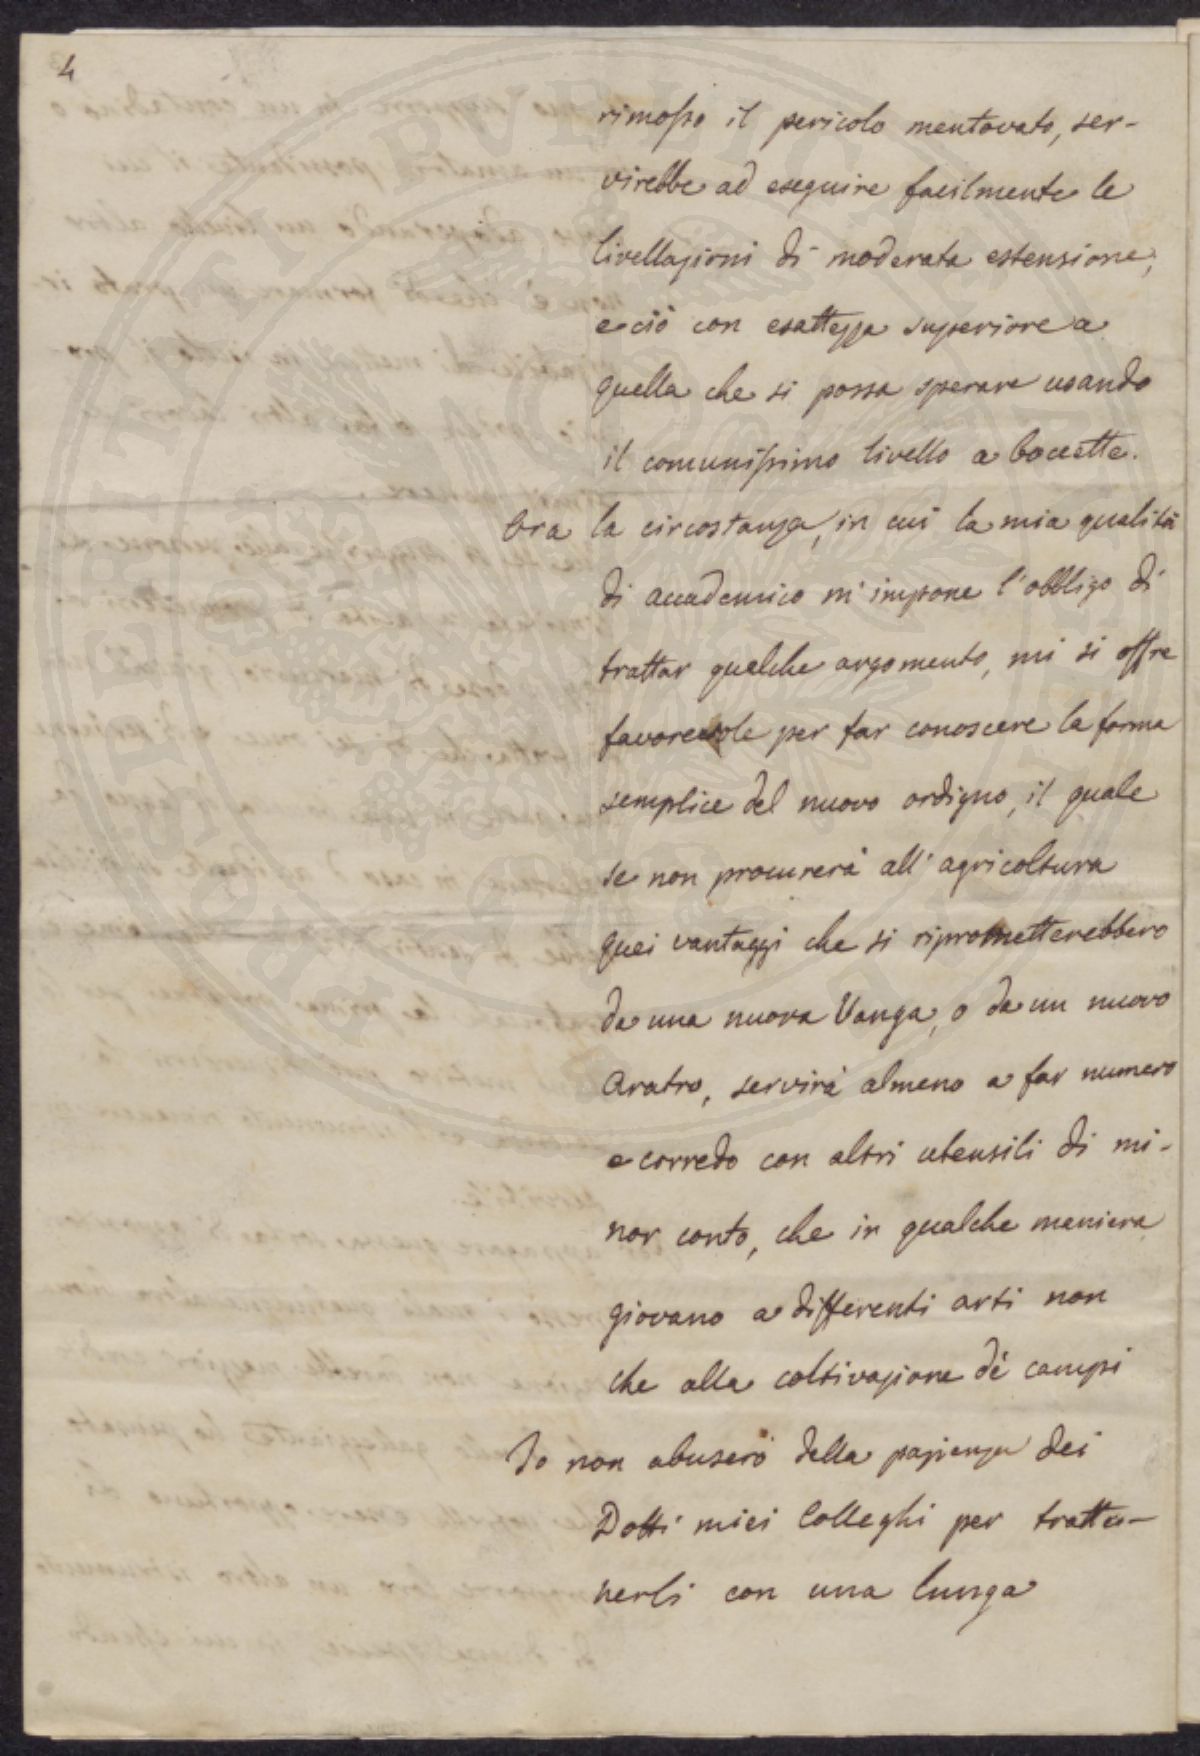 4
rimosso il pericolo mentovato, ser-
virebbe ad eseguire facilmente le
livellazioni di moderata estensione,
e ciò con esattezza superiore a
quella che si possa sperare usando
il comunissimo livello a boccette.
Ora la circostanza, in cui la mia qualità
di accademico m'impone l'obbligo di
trattar qualche argomento, mi si offre
favorevole per far conoscere la forma
semplice del nuovo ordigno, il quale
se non procurerà all'agricoltura
quei vantaggi che si riprometterebbero
da una nuova Vanga, o da un nuovo
Aratro, servirà almeno a far numero
e corredo con altri utensili di mi-
nor conto, che in qualche maniera
giovano a differenti arti non
che alla coltivazione dè campi
Io non abuserò della pazienza dei
Dotti miei Colleghi per tratte-
nerli con una lunga